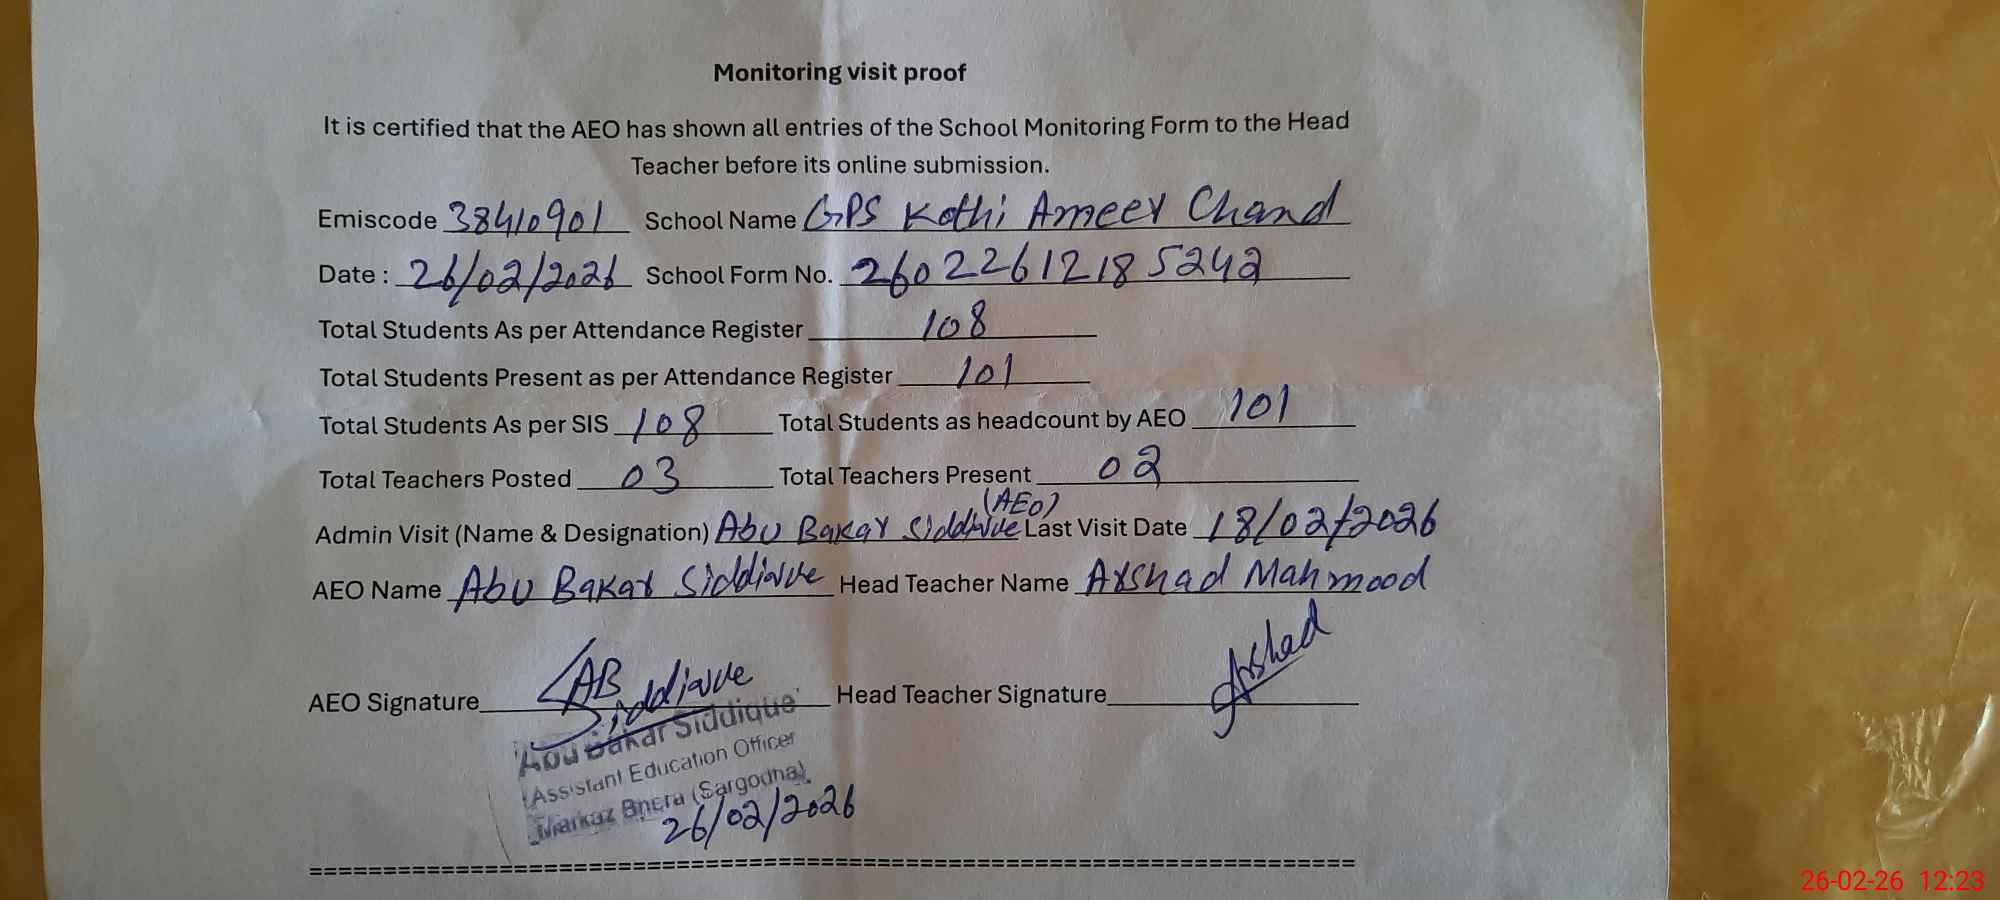 Monitoring visit proof
It is certified that the AEO has shown all entries of the School Monitoring Form to the Head
Teacher before its online submission.
Emiscode 38410901 School Name GPS Kothi Ameer Chand
Date : 26/02/2026 School Form No. 260226121185242
Total Students As per Attendance Register 108
Total Students Present as per Attendance Register 101
Total Students As per SIS 108 Total Students as headcount by AEO 101
Total Teachers Posted 03 Total Teachers Present 02
Admin Visit (Name & Designation) Abu Bakar Siddique (AEO) Last Visit Date 18/02/2026
AEO Name Abu Bakar Siddique Head Teacher Name Arshad Mahmood
AEO Signature AB Siddique Head Teacher Signature Arshad
Abu Bakar Siddique
Assistant Education Officer
Markaz Bhera (Sargodha)
26/02/2026
================================================================================
26-02-26 12:23